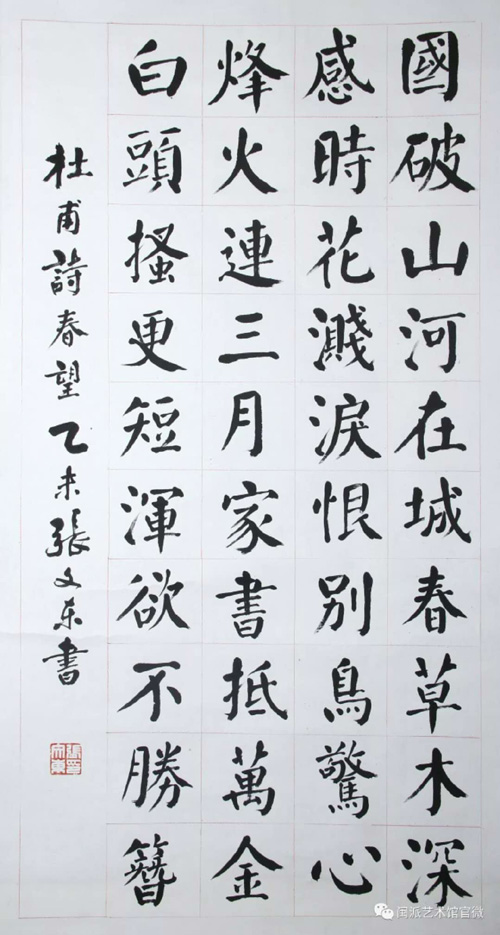 國破山河在城春草木深
感時花濺淚恨別鳥驚心
烽火連三月家書抵萬金
白頭搔更短渾欲不勝簪
杜甫詩春望乙未張文东書
闽派艺术馆官微